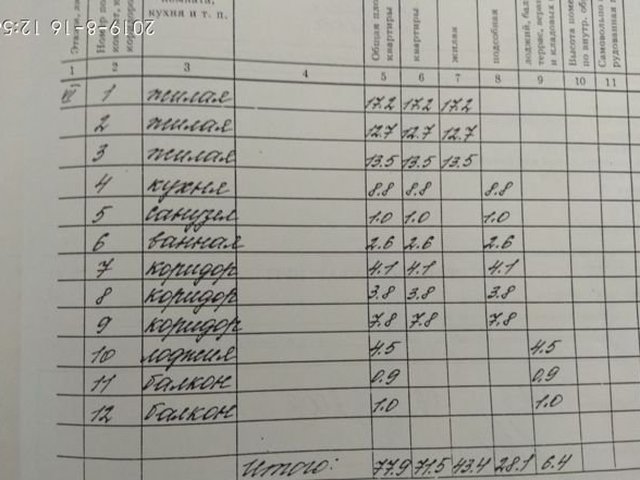 2019-8-16 12:5
Номер
комната,
кухня и т. п.
Общая
квартиры
квартиры
жилая
подсобная
лоджий,
террас,
и кладовых
Высота
по внутр.
Самовольно
1 2 3 4 5 6 7 8 9 10 11
1 жилая 17.2 17.2 17.2
2 жилая 12.7 12.7 12.7
3 жилая 13.5 13.5 13.5
4 кухня 8.8 8.8 8.8
5 санузел 1.0 1.0 1.0
6 ванная 2.6 2.6 2.6
7 коридор 4.1 4.1 4.1
8 коридор 3.8 3.8 3.8
9 коридор 7.8 7.8 7.8
10 лоджия 4.5 4.5
11 балкон 0.9 0.9
12 балкон 1.0 1.0
Итого: 77.9 71.5 43.4 28.1 6.4